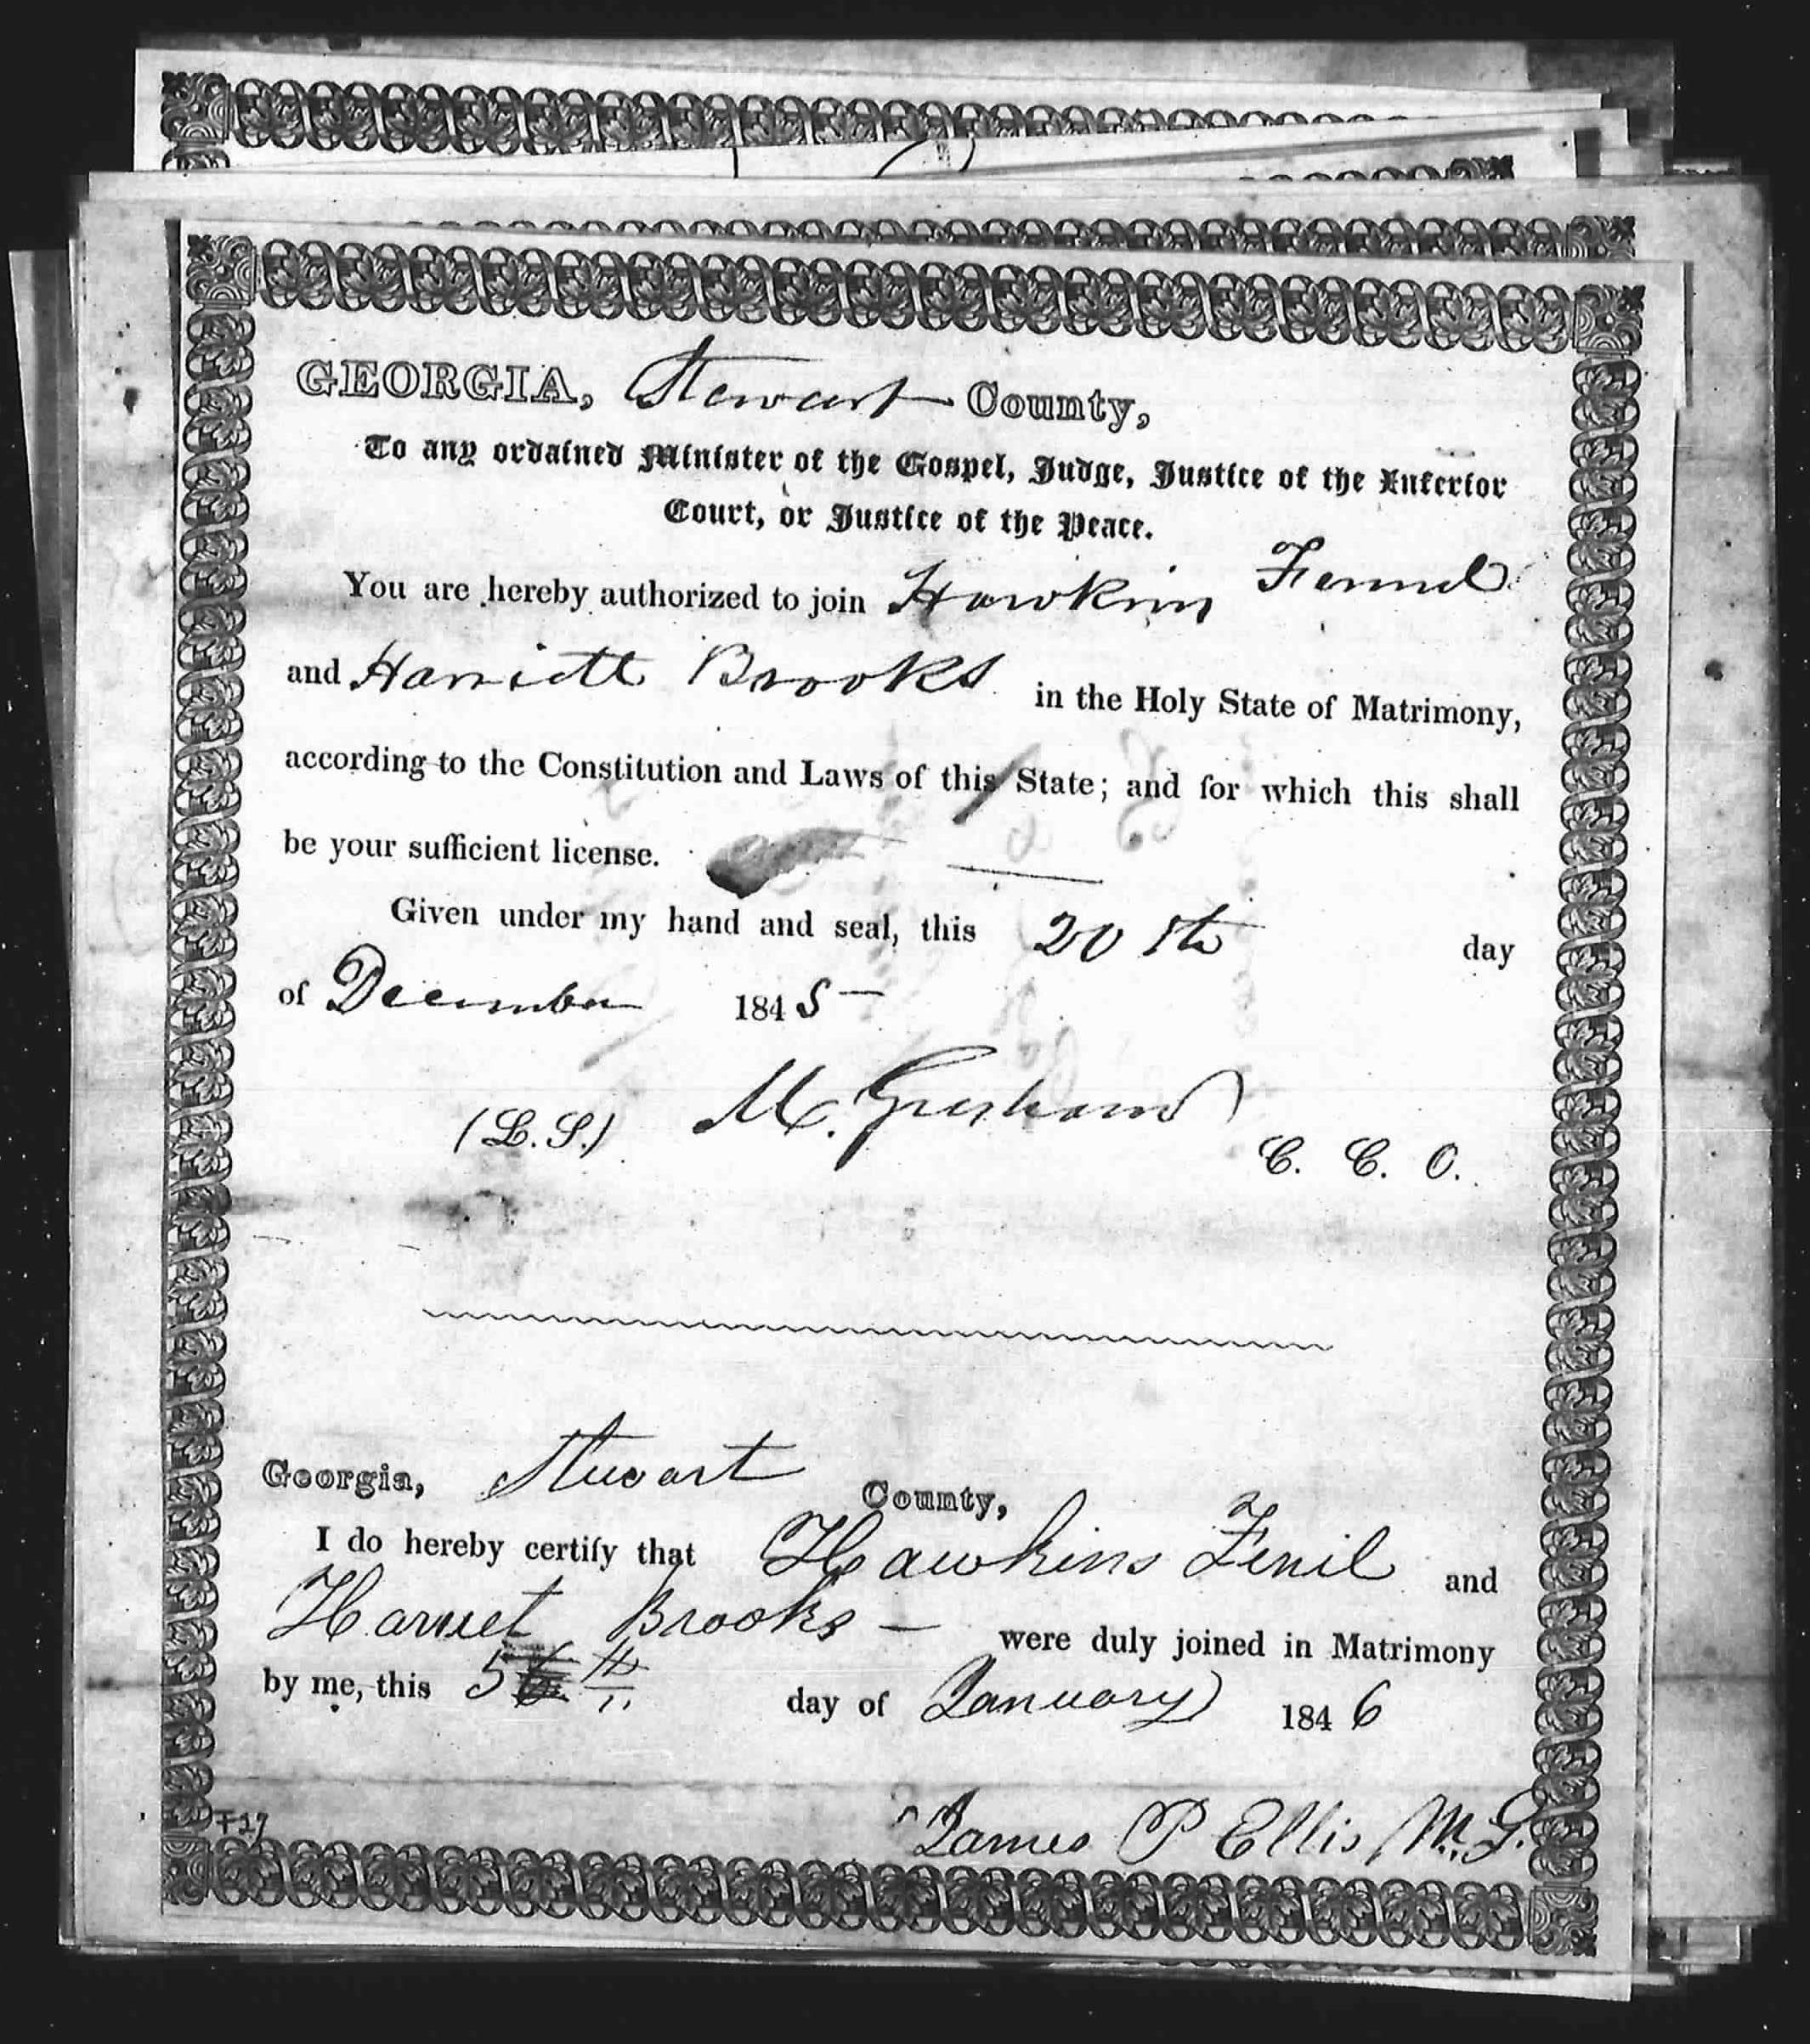 GEORGIA, Stewart County,
To any ordained Minister of the Gospel, Judge, Justice of the Inferior
Court, or Justice of the Peace.
You are hereby authorized to join Hawkins Fennel
and Harriett Brooks in the Holy State of Matrimony,
according to the Constitution and Laws of this State; and for which this shall
be your sufficient license.
Given under my hand and seal, this 20th day
of December 1845
(L.S.) M. Gresham C. C. O.
Georgia, Stewart County,
I do hereby certify that Hawkins Fenil and
Harriet Brooks were duly joined in Matrimony
by me, this 5 th day of January 1846
James P Ellis M.G.
F27